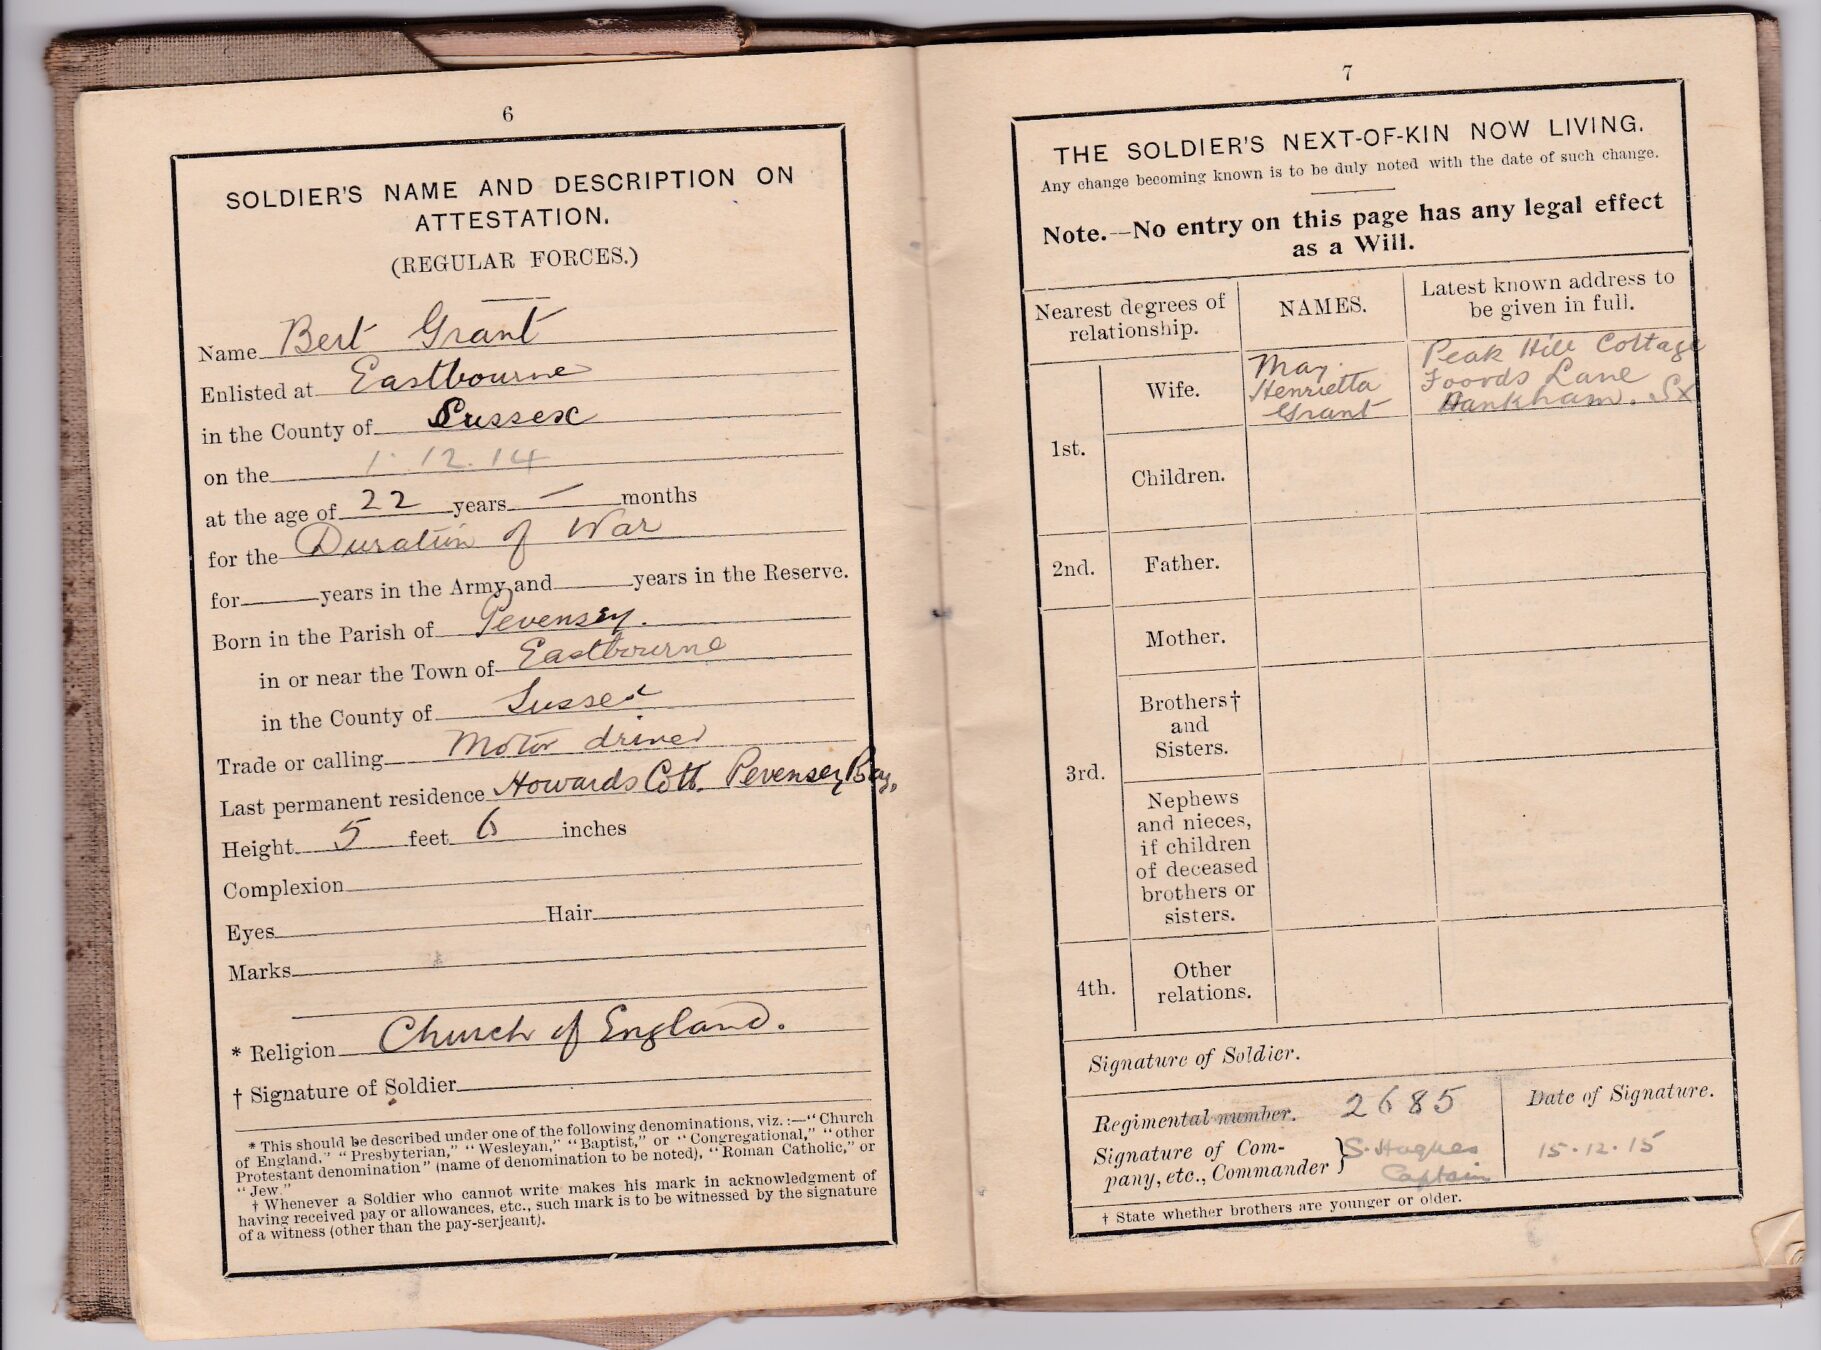 6
SOLDIER'S NAME AND DESCRIPTION ON
ATTESTATION.
(REGULAR FORCES.)
Name Bert Grant
Enlisted at Eastbourne
in the County of Sussex
on the 1.12.14
at the age of 22 years — months
for the Duration of War
for years in the Army and years in the Reserve.
Born in the Parish of Pevensey.
in or near the Town of Eastbourne
in the County of Sussex
Trade or calling Motor driver
Last permanent residence Howards Cott. Pevensey Bay.
Height 5 feet 6 inches
Complexion
Eyes Hair
Marks
* Religion Church of England.
† Signature of Soldier
* This should be described under one of the following denominations, viz.:—"Church
of England," "Presbyterian," "Wesleyan," "Baptist," or "Congregational," "other
Protestant denomination" (name of denomination to be noted), "Roman Catholic," or
"Jew."
† Whenever a Soldier who cannot write makes his mark in acknowledgment of
having received pay or allowances, etc., such mark is to be witnessed by the signature
of a witness (other than the pay-serjeant).
7
THE SOLDIER'S NEXT-OF-KIN NOW LIVING.
Any change becoming known is to be duly noted with the date of such change.
Note.—No entry on this page has any legal effect
as a Will.
Nearest degrees of
relationship.
NAMES.
Latest known address to
be given in full.
1st.
Wife.
May
Henrietta
Grant
Peak Hill Cottage
Foords Lane
Hankham. Sx
Children.
2nd.
Father.
3rd.
Mother.
Brothers†
and
Sisters.
Nephews
and nieces,
if children
of deceased
brothers or
sisters.
4th.
Other
relations.
Signature of Soldier.
Regimental number. 2685
Date of Signature.
Signature of Com-
pany, etc., Commander } S. Hughes
Captain
15.12.15
† State whether brothers are younger or older.